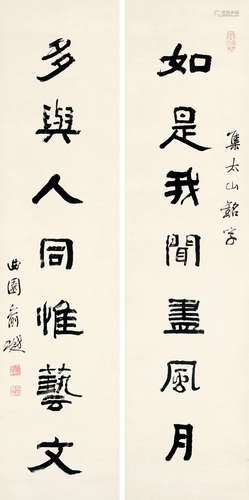 如是我聞盡風月
集太山銘字
多與人同惟藝文
曲園俞樾